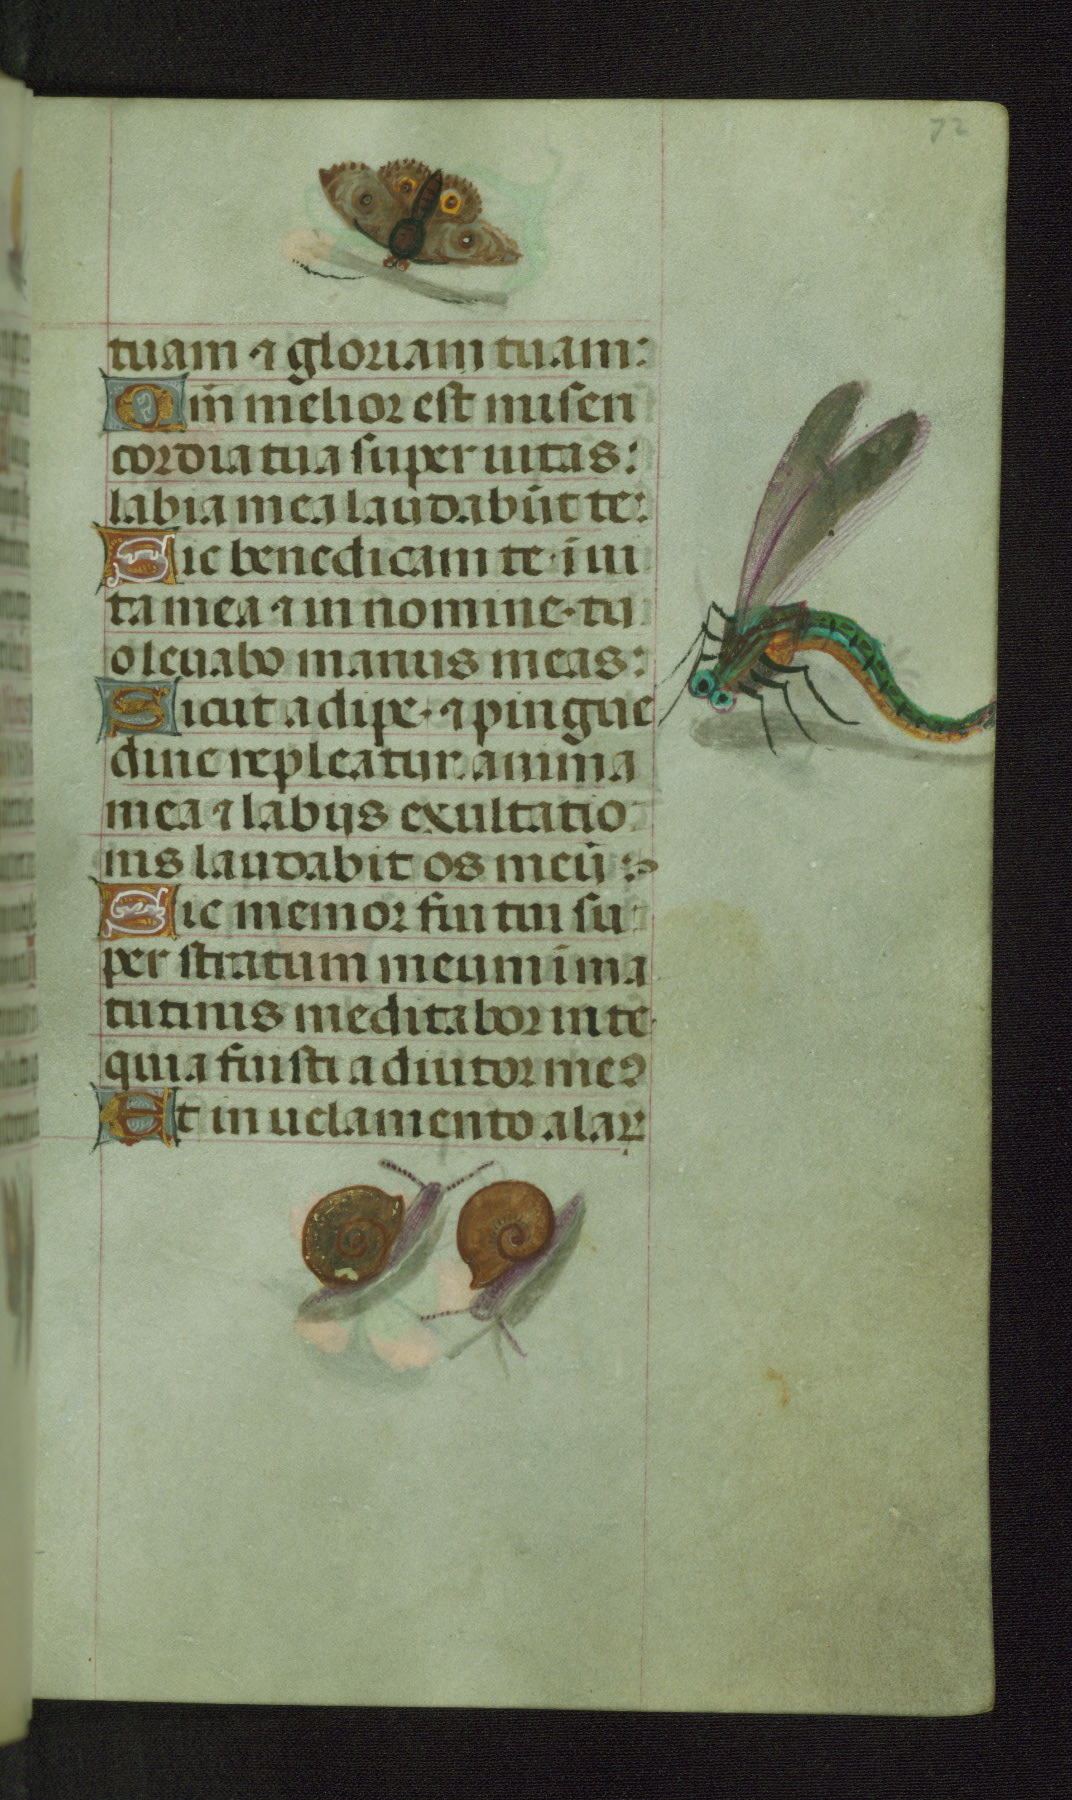 72
tuam ⁊ gloriam tuam:
Qm̄ melior est miseri
cordia tua super uitas:
labia mea laudabūt te:
Sic benedicam te ī ui
ta mea ⁊ in nomine tu
o leuabo manus meas:
Sicut adipe ⁊ pingue
dine repleatur anima
mea ⁊ labijs exultatio
nis laudabit os meū:
Sic memor fui tui su
per stratum meum ī ma
tutinis meditabor in te
quia fuisti adiutor me9
Et in uelamento alaꝝ